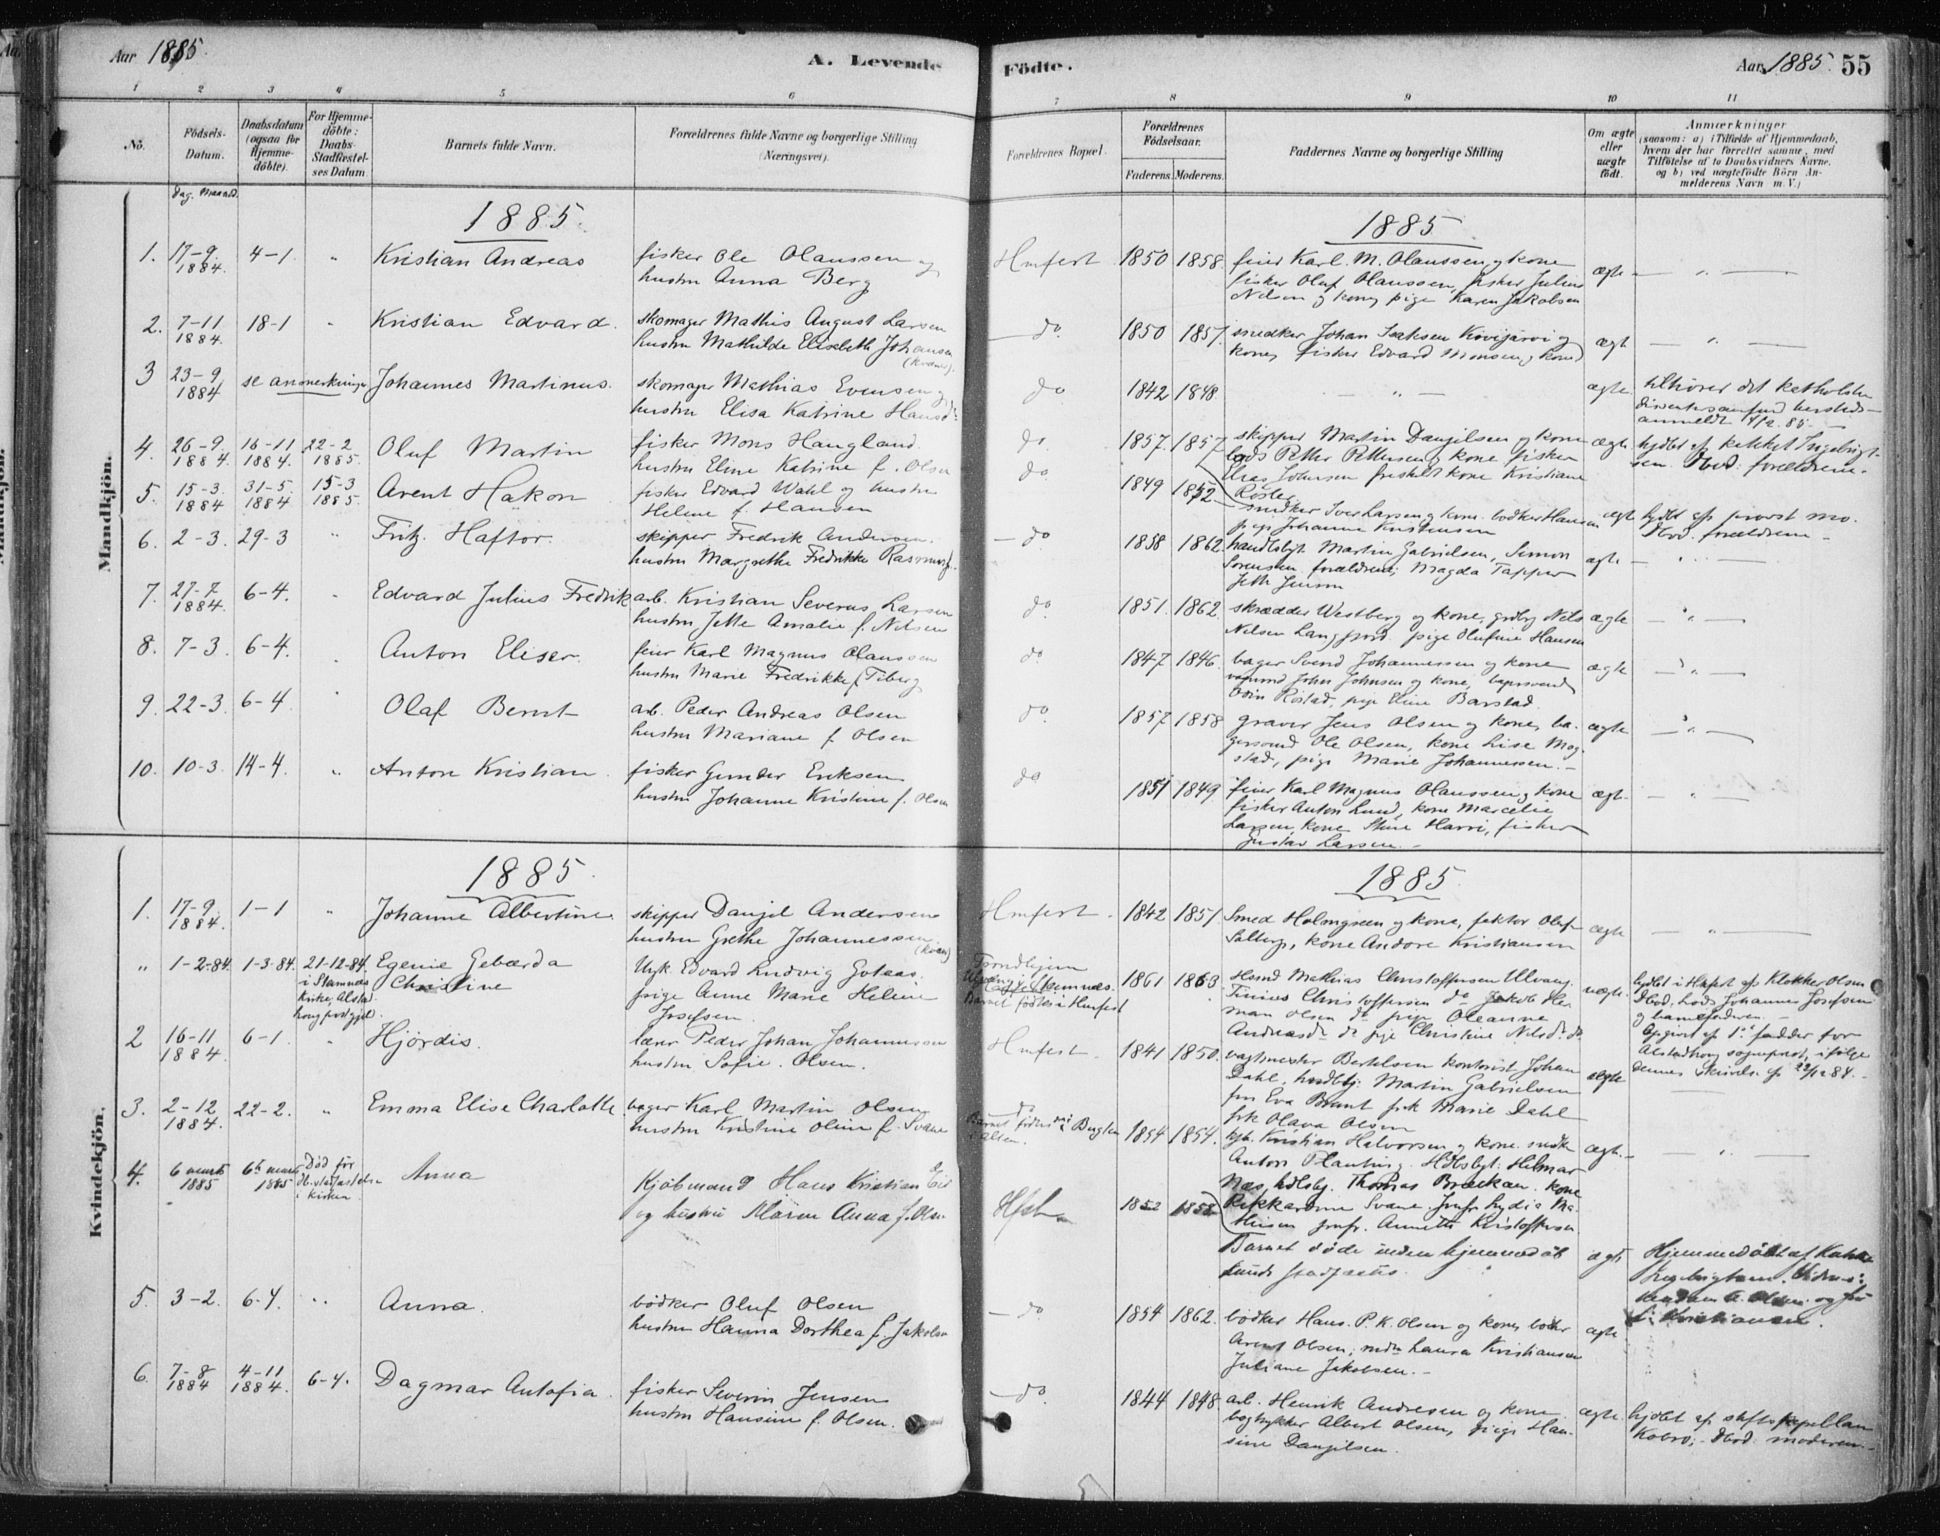 Aar 1885.
A. Levende
Födte.
Aar 1885. 55
1 2 3 4 5 6 7 8 9 10 11
No.
Födsels-Datum.
Daabsdatum (ogsaa for Hjemme-döbte).
For Hjemme-döbte: Daabs-Stadfæstel-ses Datum
Barnets fulde Navn.
Forældrenes fulde Navne og borgerlige Stilling (Næringsvei).
Forældrenes Bopæl.
Forældrenes Födselsaar.
Faderens. Moderens.
Faddernes Navne og borgerlige Stilling
Om ægte eller uægte födt.
Anmærkninger
(saasom: a) i Tilfælde af Hjemmedaab, hvem der har forrettet samme, med Tilföielse af to Daabsvidners Navne. og b) ved uægtefödte Börn An-melderens Navn m. V.)
Dag. Maaned.
Mandkjön.
1885.
1885
1. 17-9. 1884. 4-1 " Kristian Andreas
fisker Ole Olaussen og
hustru Anna Berg
Hmfest 1850 1858.
feier Karl. M. Olaussen og kone
fisker Oluf Olaussen, fisker Julius
Nilsen og kone, pige Karen Jakobsen
ægte
2. 7-11 1884. 18-1 " Kristian Edvard.
skomager Mathis August Larsen
hustru Mathilde Elisabeth Johansen
do 1850 1857.
snedker Johan Isaksen Kivijärvi og
kone, fisker Edvard Monsen og kone
ægt
3 23-9 1884 se anmerkninger Johannes Martinus.
skomager Mathias Evensen og
hustru Elisa Katrine
do 1842 1848
ægte
tilhører det katholske
dissentersamfund hersteds
anmeldt 4/2 85
4. 26-9. 1884. 16-11 1884. 22-2 1885. Oluf Martin
fisker Mons Haugland
hustru Eline Katrine f. Olsen
do 1857. 1857
skipper Martin Danjelsen og kone
lods Petter Pettersen og kone fisker
Elias Johnsen fraskilt kone Kristiane
Røsler
ægte
hjdbt af kateket Ingebrigt-
sen. Dbvd: forældrene.
5. 15-3. 1884 31-5 1884 15-3 1885. Arent Hakon
fisker Edvard Wahl og hustru
Helene f. Hansen
do 1849 1852
snedker Iver Larsen og kone. bødker Hansen
pige Johanne Kristensen
ægt
hjdbt af provst Mo.
Dbvd. forældrene
6. 2-3. 29-3 " Fritz Haftor.
skipper Fredrik Andersen.
hustru Margrethe Fredrikke
do 1858 1862.
handlsbgt. Martin Gabrielsen, Simon
Sørensen, forældrene; Magda Tapper
Jeth Jensen
ægte
7. 27-7 1884. 6-4. " Edvard Julius Fredrik
arb. Kristian Severus Larsen
hustru Jette Amalie f. Nilsen
do 1851. 1862
skrædder Westberg og kone, grdbg Nils
Nilsen Langfjord. pige Olufine Hansen
ægte
8. 7-3. 6-4. Anton Eliser.
feier Karl Magnus Olaussen
hustru Marie Fredrikke f. Tiberg
do. 1847 1846.
bager Svend Johannessen og kone
John Johnsen og kone,
Odin Røstad, pige Eline Barstad.
ægte
9. 22-3. 6-4 Olaf Bernt
arb. Peder Andreas Olsen
hustru Mariane f. Olsen
do. 1857 1858
graver Jens Olsen og kone, ba-
gersvend Ole Olsen, kone Lise Mog-
stad, pige Marie Johannessen.
ægte
10. 10-3. 14-4. " Anton Kristian.
fisker Gunder Eriksen
hustru Johanne Kristine f. Olsen
do 1851 1849
feier Karl Magnus Olaussen og kone
fisker Anton Lund, kone Marcelie
Larsen, kone Stine Harri, fisker
Gustav Larsen.
ægt
Kvindekjön.
1885.
1885.
1. 17-9. 1884. 1-1 " Johanne Albertine
skipper Danjel Andersen
hustru Grethe Johannessen
(kvæn)
Hmfest. 1842 1851
Smed Holmgreen og kone, faktor Oluf
Solberg, kone Andore Kristiansen
ægte
" 1-2-84. 1-3-84. 21-12-84. i Stamnæs kirke, Alsta-houg prdgjd.
Egenie Gebærda
Christine
Urk. Edvard Ludvig Gotaas.
pige Anne Marie Helene
Josefsen.
Trondhjem
Barnet födtes i Hmfest
1861 1863
Mathias Christoffersen Ulvang
Tinius Christoffersen do Jakob Her-
man Olsen do pige Oleanne
Andreasd. do pige Christine Nilsd. do.
uægte.
hjdbt i Hmfest af Klokker Olsen
Dbvd. Lods Johannes Josefsen
og barnefaderen.
Opgivet af 1. fadder for
Alstadhoug sogneprest, ifølge
dennes skrivelse af 22/12 84.
2 16-11 1884. 6-1. " Hjördis.
lærer Peder Johan Johannessen
hustru Sofie Olsen.
Hmfest. 1841 1850.
vagtmester Bertelsen kontorist Johan
Dahl, hndlbtj. Martin Gabrielsen
fru Eva Brunt frk Marie Dahl
frk Olava Olsen
ægte
3. 2-12 1884. 22-2. " Emma Elise Charlotte
bager Karl Martin Olsen
hustru Kristine Oline f. Svane
do
1854 1854.
kjb. Kristian Halvorsen og kone. snedk
Anton Planting. Hdlsbgt. Helmar
Næs, hdlsbg. Thomas Brækkan. kone
Rikkardine Svane Jnfr. Lydia Ma-
thisen Jnfr. Annette Kristoffersen
ægt.
4. 6 marts 1885 6te marts 1885 Död för db. stadfæstelse i kirken
Anna
Kjöbmand Hans Kristian
og hustru Maren Anna f. Olsen
Hfst 1852 1858
Barnet døde inden hjemmedåb
kunde stadfæstes.
ægte
Hjemmedöbt af Katek
Ingebrigtsen.
5. 3-2. 6-4. " Anna.
bödker Oluf Olsen
hustru Hanna Dorthea f. Jakobsen
do 1854 1862.
bödker Hans. P. K. Olsen og kone, bödker
Arent Olsen, Laura Kristiansen
Juliane Jakobsen.
ægte
6. 7-8 1884 4-11 1884. 6-4. Dagmar Antofia.
fisker Severin Jensen
hustru Hansine f. Olsen.
do. 1844 1848.
arb. Henrik Andresen og kone
bogtrykker Albert Olsen, pige Han-
sine Danjelsen.
ægte.
hjdbt af stiftskapellan
Kobro; Dbvd. moderen.